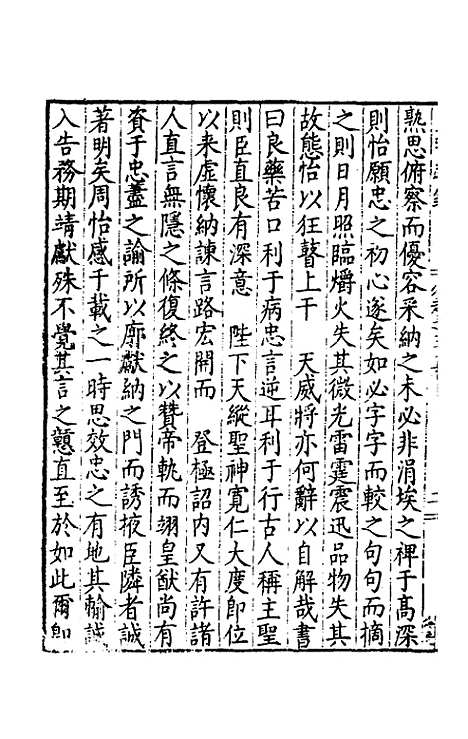 熟思俯察而優容采納之未必非涓埃之裨于高深
則怡願忠之初心遂矣如必字字而較之句句而摘
之則日月照臨爝火失其微光雷霆震迅品物失其
故態怡以狂瞽上干　天威將亦何辭以自解哉書
曰良藥苦口利于病忠言逆耳利于行古人稱主聖
則臣直良有深意　陛下天縱聖神寬仁大度即位
以來虚懷納諫言路宏開而　登極詔内又有許諸
人直言無隱之條復終之以贊帝軌而翊皇猷尚有
資于忠藎之諭所以廓獻納之門而誘掖臣隣者誠
著明矣周怡感千載之一時思效忠之有地其輸誠
入告務期靖獻殊不覺其言之戇直至於如此爾即